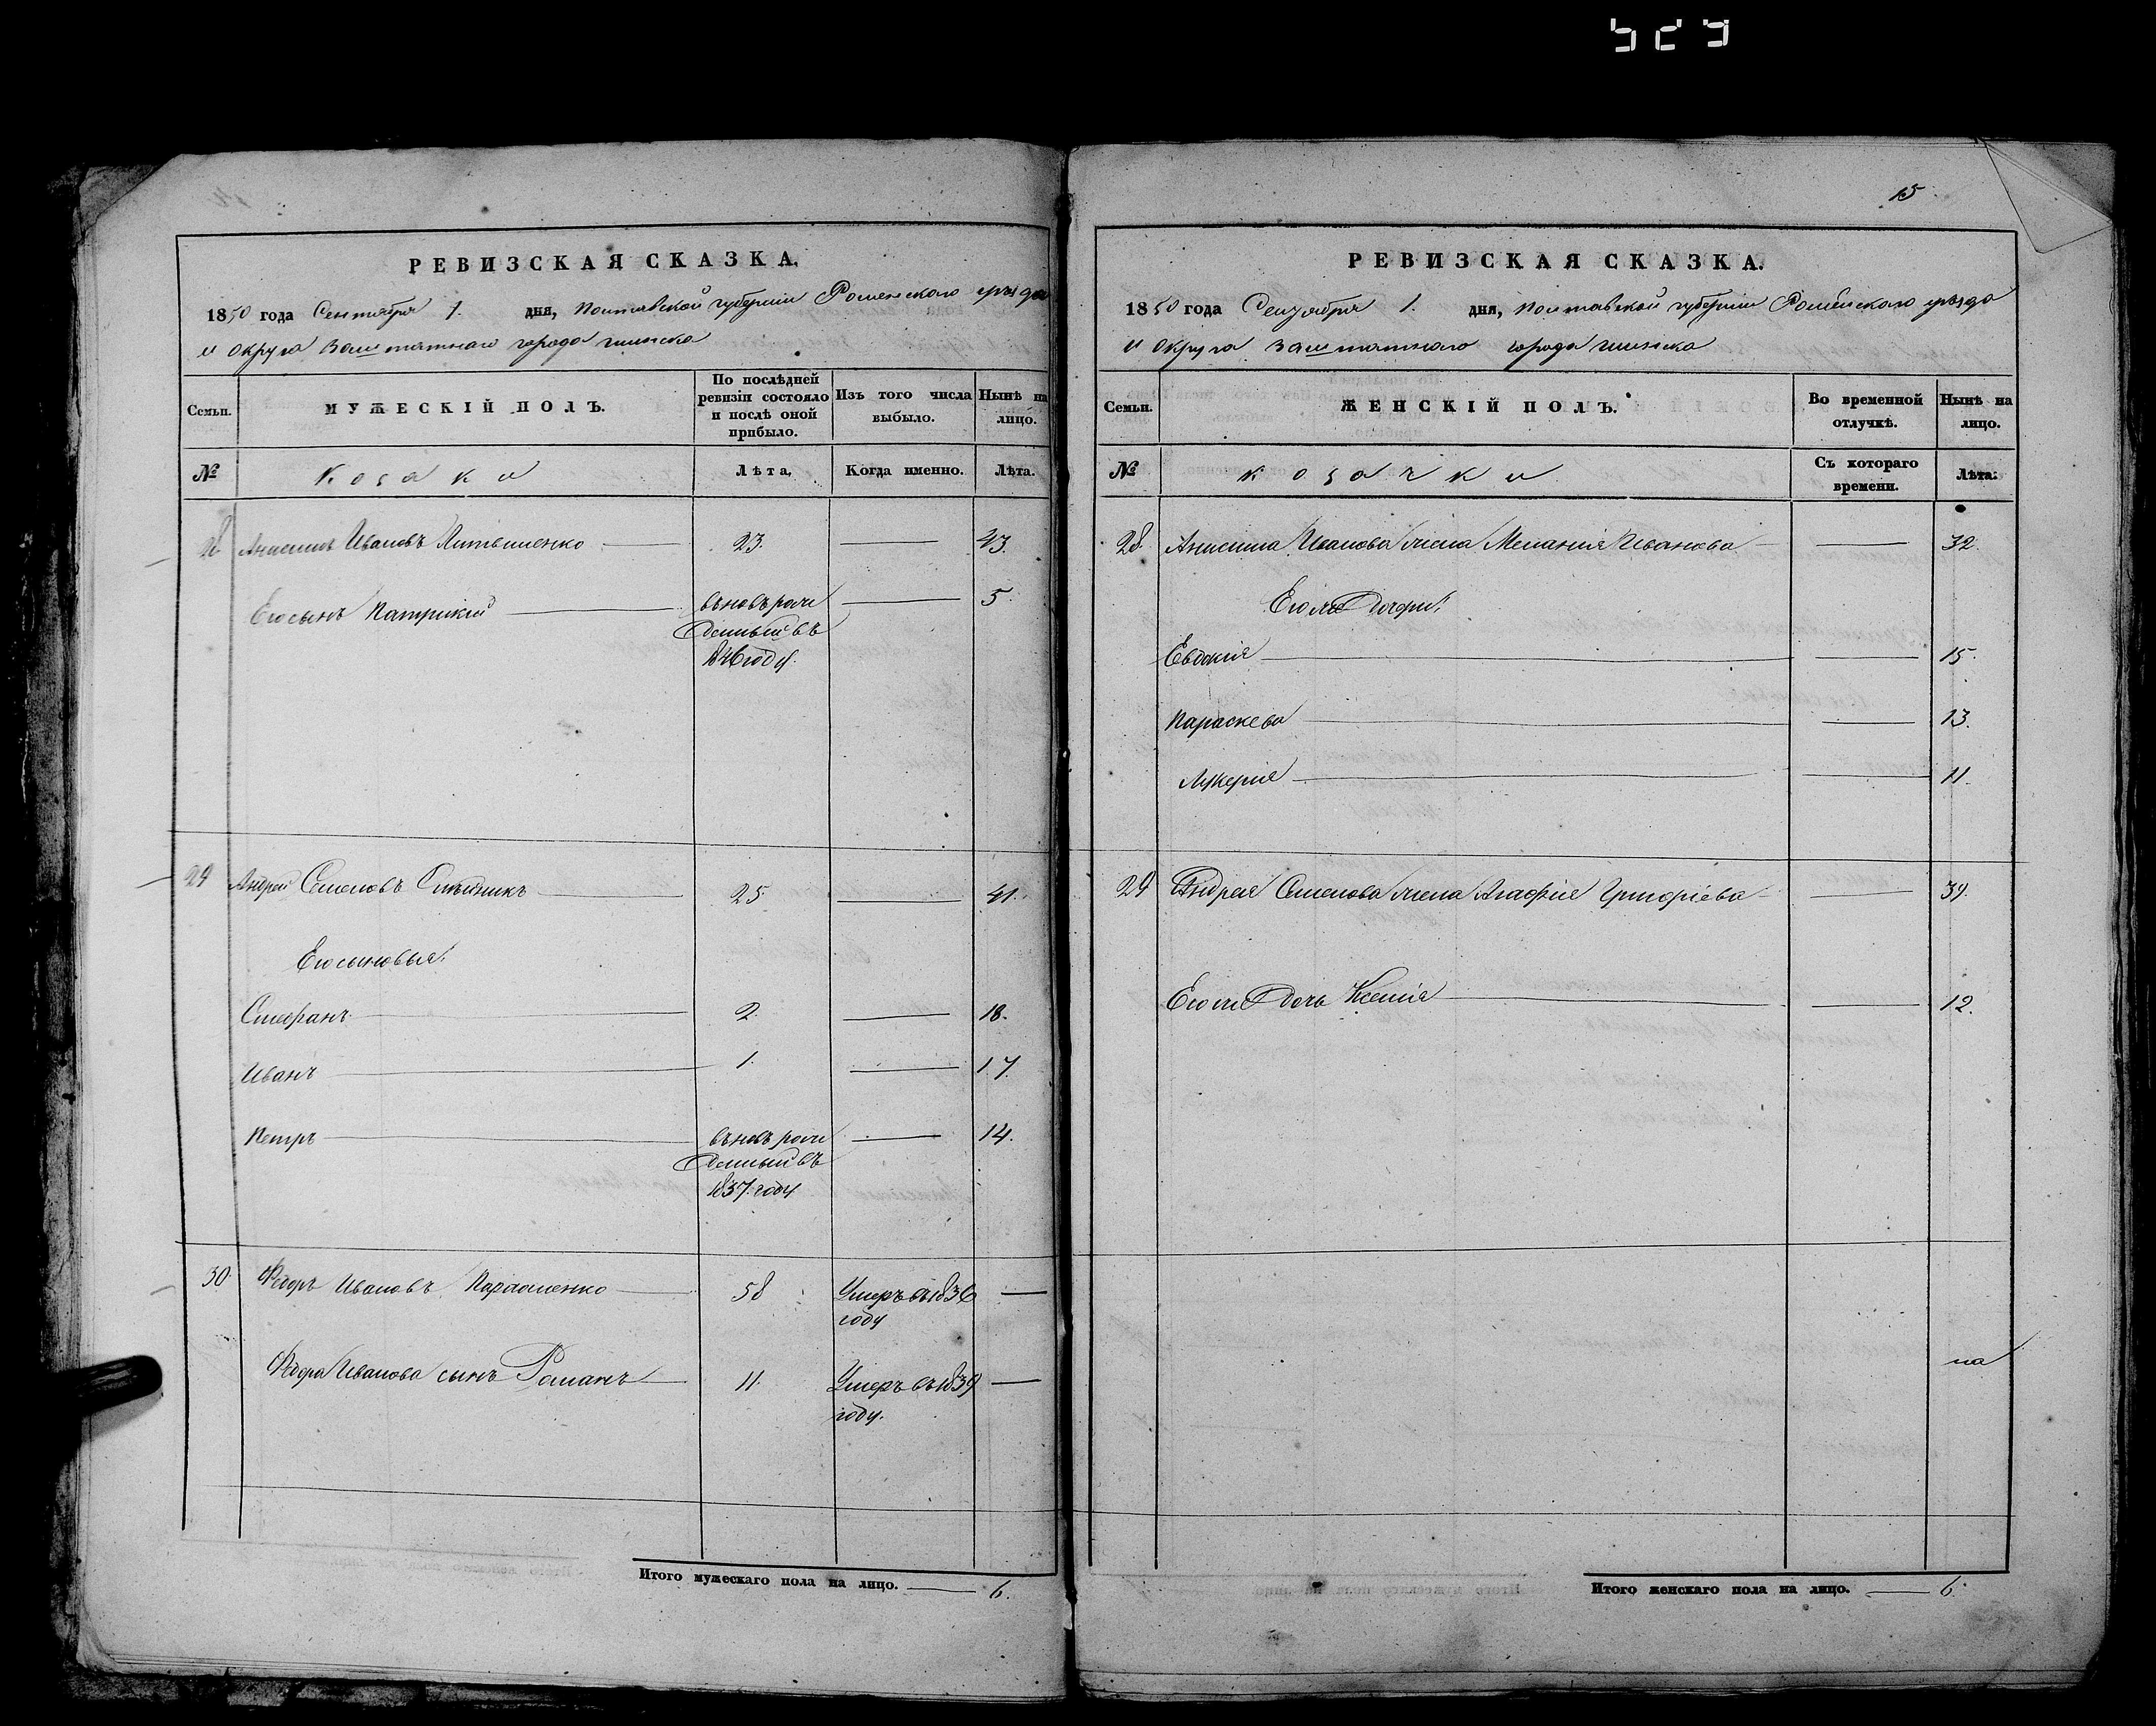 529
РЕВИЗСКАЯ СКАЗКА.
1850 года Сентября 1. дня, Полтавской губернии Роменского уѣзда
и округа заштатнаго города Глинска
Семьи.
МУЖЕСКІЙ ПОЛЪ.
По послѣдней ревизіи состояло и послѣ оной прибыло.
Изъ того числа выбыло.
Нынѣ на лицо.
№
Козаки
Лѣта,
Когда именно.
Лѣта.
28 Анисимъ Ивановъ Литвиненко 23. 43.
Его сынъ Патрикій вѣновь рож 5
денный въ
1846 году.
29 Андрей Семеновъ 25 41.
Его сыновья:
Стефанъ 2. 18.
Иванъ 1. 17.
Петръ вѣновь рож 14.
денный въ
1837 году
30. Федоръ Ивановъ Пархоменко 58 Умеръ въ 1836
году
Федора Иванова сынъ Романъ 11. Умеръ въ 1839
году.
Итого мужескаго пола на лицо. 6.
15
РЕВИЗСКАЯ СКАЗКА.
1850 года Сентября 1. дня, Полтавской губерніи Роменского уѣзда
и округа заштатнаго города Глинска
Семьи.
ЖЕНСКІЙ ПОЛЪ.
Во временной отлучкѣ.
Нынѣ на лицо.
№
Козачки
Съ котораго времени.
Лѣта.
28. Анисима Иванова жена Меланія Иванова 32.
Его же дочери:
Евдокія 15.
Параскева 13.
Лукерія 11.
29 Андрея Семенова жена Агафія Григоріева 39.
Его же дочь Ксенія 12.
на
Итого женскаго пола на лицо. 6.